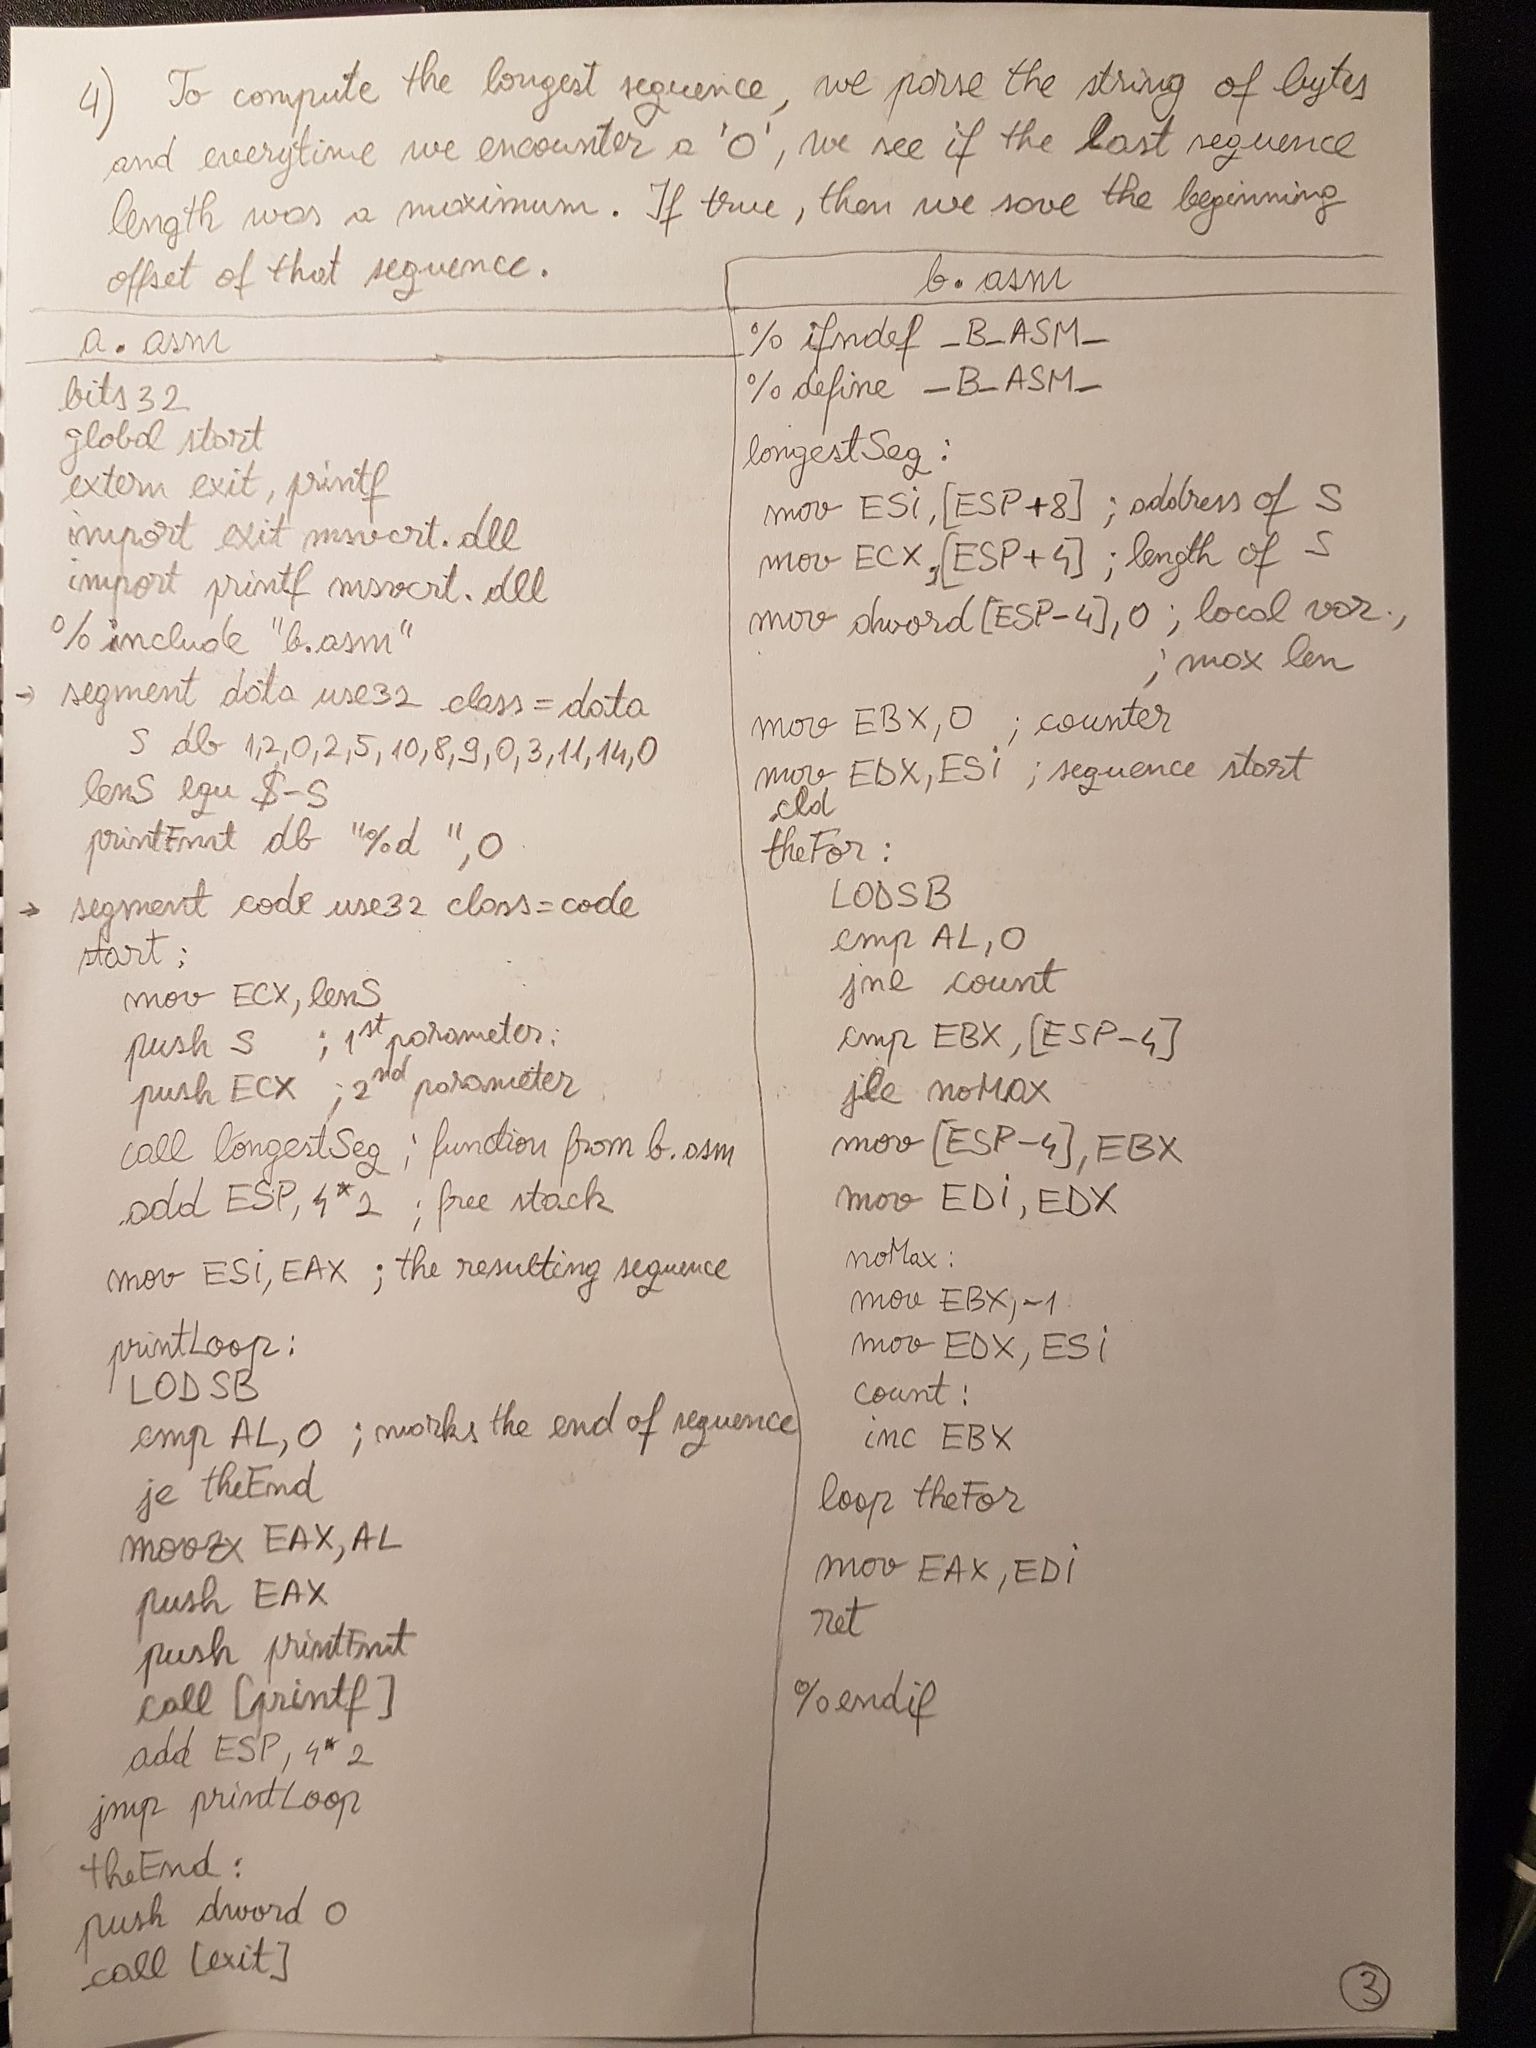 4) To compute the longest sequence, we parse the string of bytes
and everytime we encounter a '0', we see if the last sequence
length was a maximum. If true, then we save the beginning
offset of that sequence.
a.asm
bits 32
global start
extern exit, printf
import exit msvcrt.dll
import printf msvcrt.dll
%include "b.asm"
→ segment data use32 class=data
S db 1,2,0,2,5,10,8,9,0,3,11,14,0
lenS equ $-S
printFmt db "%d ",0
→ segment code use32 class=code
start:
mov ECX, lenS
push S ; 1st parameter:
push ECX ; 2nd parameter
call longestSeq ; function from b.asm
add ESP, 4*2 ; free stack
mov ESi, EAX ; the resulting sequence
printLoop:
LODSB
cmp AL, 0 ; marks the end of sequence
je theEnd
movzx EAX, AL
push EAX
push printFmt
call [printf]
add ESP, 4*2
jmp printLoop
theEnd:
push dword 0
call [exit]
b.asm
%ifndef _B_ASM_
%define _B_ASM_
longestSeq:
mov ESi, [ESP+8] ; address of S
mov ECX, [ESP+4] ; length of S
mov dword [ESP-4], 0 ; local var.,
; max len
mov EBX, 0 ; counter
mov EDX, ESi ; sequence start
cld
theFor:
LODSB
cmp AL, 0
jne count
cmp EBX, [ESP-4]
jle noMAX
mov [ESP-4], EBX
mov EDi, EDX
noMax:
mov EBX, -1
mov EDX, ESi
count:
inc EBX
loop theFor
mov EAX, EDi
ret
%endif
3